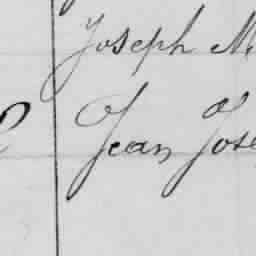 Joseph M
Jean Jose